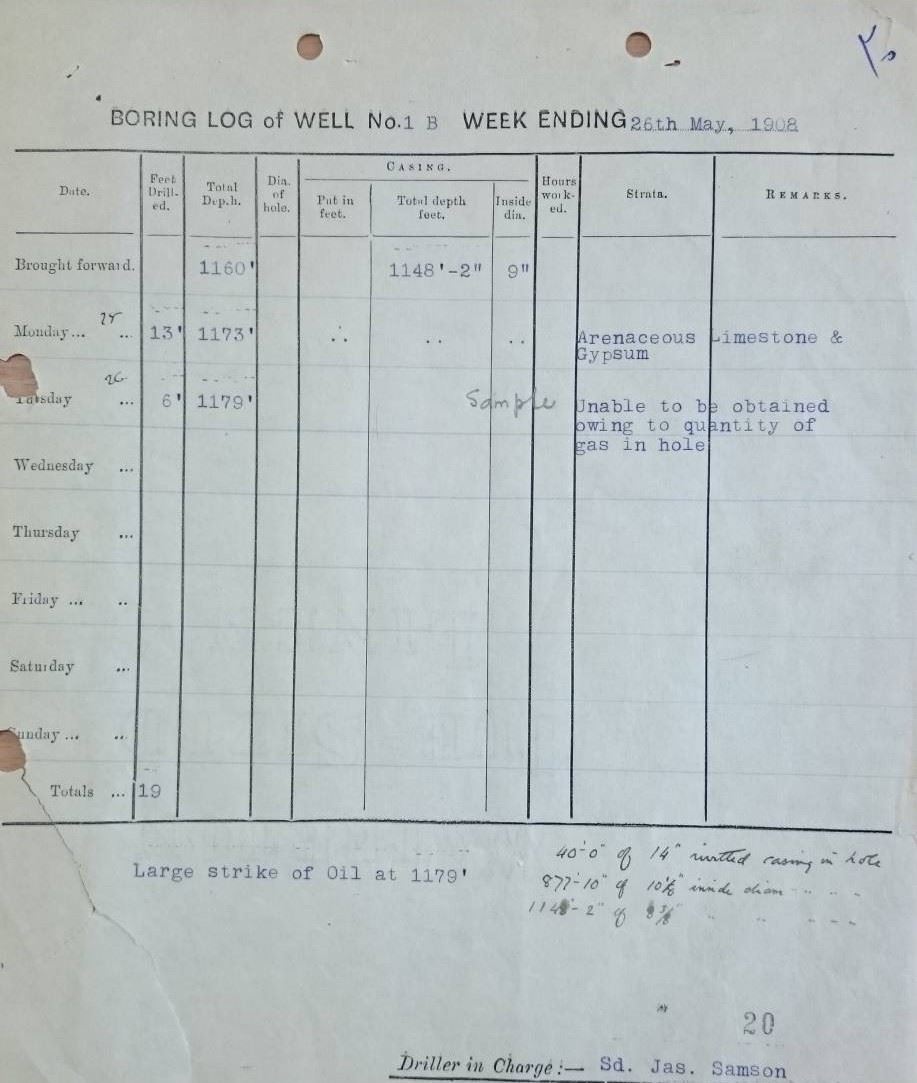 BORING LOG of WELL No.1 B WEEK ENDING 26th May, 1908
CASING.
Date. Feet Drill-ed. Total Dep.h. Dia. of hole. Put in feet. Total depth feet. Inside dia. Hours work-ed. Strata. REMARKS.
Brought forward. 1160' 1148'-2" 9"
Monday... 25 ... 13' 1173' .. .. .. Arenaceous Limestone &
Gypsum
Tuesday 26 ... 6' 1179' Sample Unable to be obtained
owing to quantity of
gas in hole
Wednesday ...
Thursday ...
Friday ... ..
Saturday ...
Sunday ... ..
Totals ... 19
Large strike of Oil at 1179'
40'-0" of 14" rivitted casing in hole
877'-10" of inside diam " " "
1148'-2" of 8 5/8" " " " " "
20
Driller in Charge :— Sd. Jas. Samson